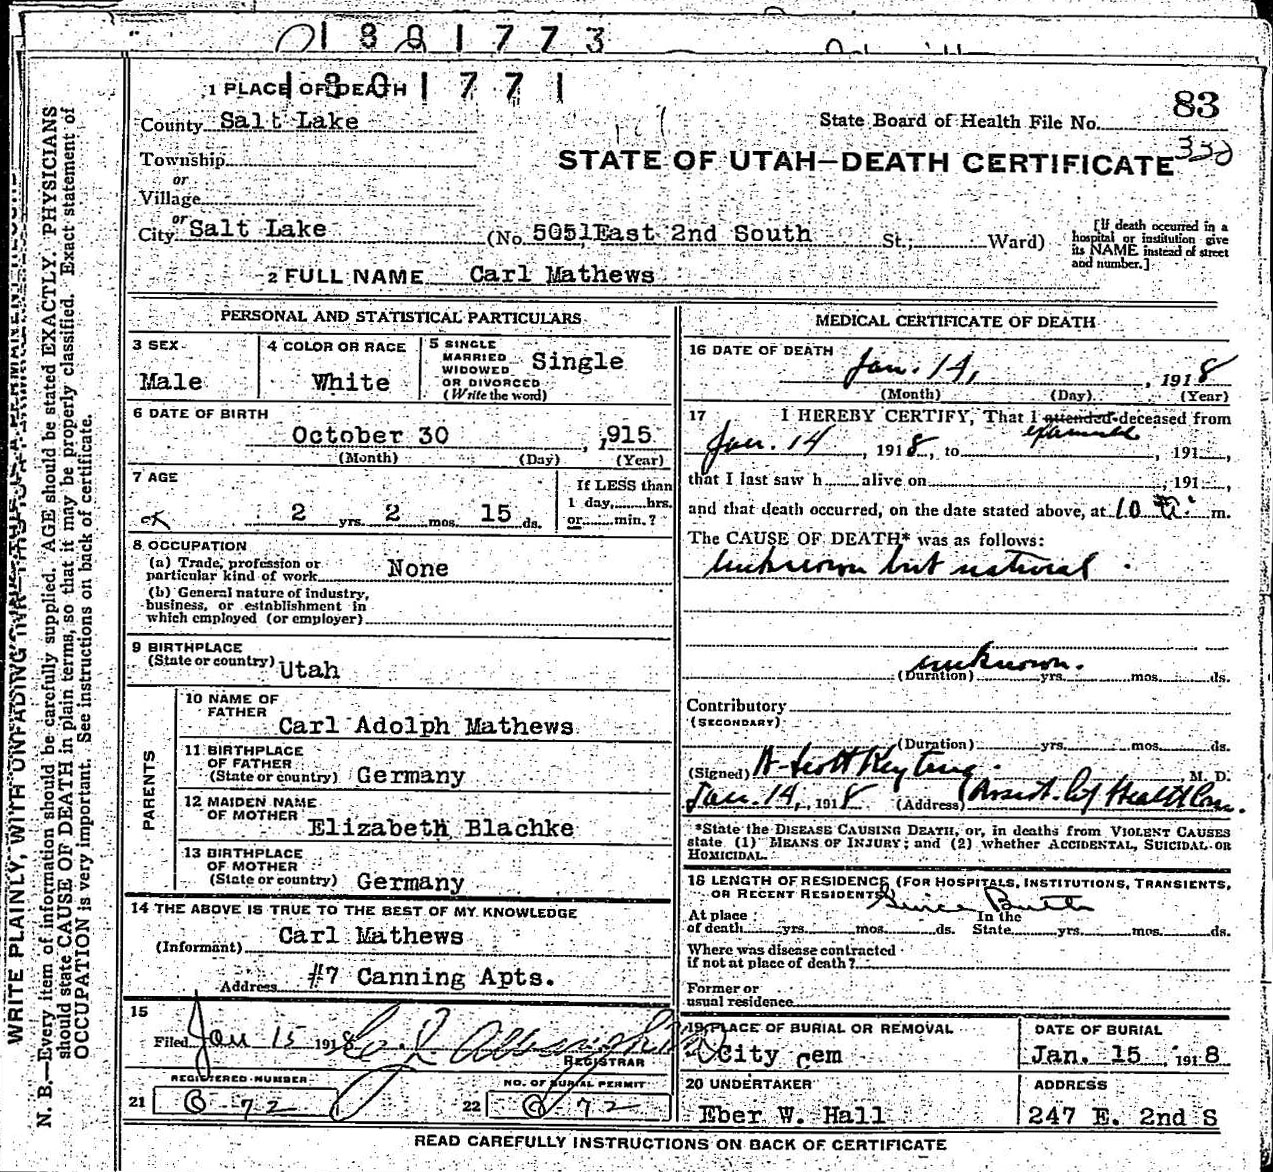 1801773
1801771
1 PLACE OF DEATH
83
County Salt Lake
State Board of Health File No.
Township
STATE OF UTAH—DEATH CERTIFICATE
or
Village
or
City Salt Lake (No. 505 East 2nd South St.; Ward)
[If death occurred in a
hospital or institution give
its NAME instead of street
and number.]
2 FULL NAME Carl Mathews
PERSONAL AND STATISTICAL PARTICULARS
3 SEX
Male
4 COLOR OR RACE
White
5 SINGLE
MARRIED
WIDOWED
OR DIVORCED
(Write the word)
Single
6 DATE OF BIRTH
October 30, 1915
(Month) (Day) (Year)
7 AGE
2 yrs. 2 mos. 15 ds.
If LESS than
1 day, hrs.
or min.?
8 OCCUPATION
(a) Trade, profession or
particular kind of work None
(b) General nature of industry,
business, or establishment in
which employed (or employer)
9 BIRTHPLACE
(State or country) Utah
PARENTS
10 NAME OF
FATHER
Carl Adolph Mathews
11 BIRTHPLACE
OF FATHER
(State or country) Germany
12 MAIDEN NAME
OF MOTHER
Elizabeth Blachke
13 BIRTHPLACE
OF MOTHER
(State or country) Germany
14 THE ABOVE IS TRUE TO THE BEST OF MY KNOWLEDGE
(Informant) Carl Mathews
Address #7 Canning Apts.
15
Filed Jan 15 1918
REGISTRAR
REGISTERED NUMBER
21 B 72
NO. OF BURIAL PERMIT
22 72
MEDICAL CERTIFICATE OF DEATH
16 DATE OF DEATH
Jan. 14, 1918
(Month) (Day) (Year)
17 I HEREBY CERTIFY, That I attended deceased from
examined
Jan. 14, 1918, to , 191 ,
that I last saw h alive on , 191 ,
and that death occurred, on the date stated above, at 10 a. m.
The CAUSE OF DEATH* was as follows:
unknown but natural.
unknown.
(Duration) yrs. mos. ds.
Contributory
(SECONDARY)
(Duration) yrs. mos. ds.
(Signed) M. D.
Jan. 14, 1918 (Address) Assist. City Health Com.
*State the DISEASE CAUSING DEATH, or, in deaths from VIOLENT CAUSES
state (1) MEANS OF INJURY; and (2) whether ACCIDENTAL, SUICIDAL OR
HOMICIDAL.
18 LENGTH OF RESIDENCE (FOR HOSPITALS, INSTITUTIONS, TRANSIENTS,
OR RECENT RESIDENTS) Since Birth
At place
of death yrs. mos. ds.
In the
State yrs. mos. ds.
Where was disease contracted
if not at place of death?
Former or
usual residence
19 PLACE OF BURIAL OR REMOVAL
City Cem
DATE OF BURIAL
Jan. 15, 1918
20 UNDERTAKER
Eber W. Hall
ADDRESS
247 E. 2nd S
READ CAREFULLY INSTRUCTIONS ON BACK OF CERTIFICATE
WRITE PLAINLY, WITH UNFADING INK—THIS IS A PERMANENT RECORD
N. B.—Every item of information should be carefully supplied. AGE should be stated EXACTLY. PHYSICIANS
should state CAUSE OF DEATH in plain terms, so that it may be properly classified. Exact statement of
OCCUPATION is very important. See instructions on back of certificate.